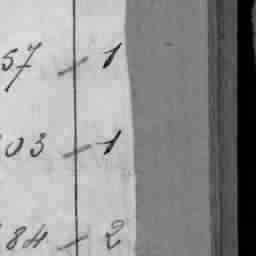 57 - 1
03 - 1
84 - 2